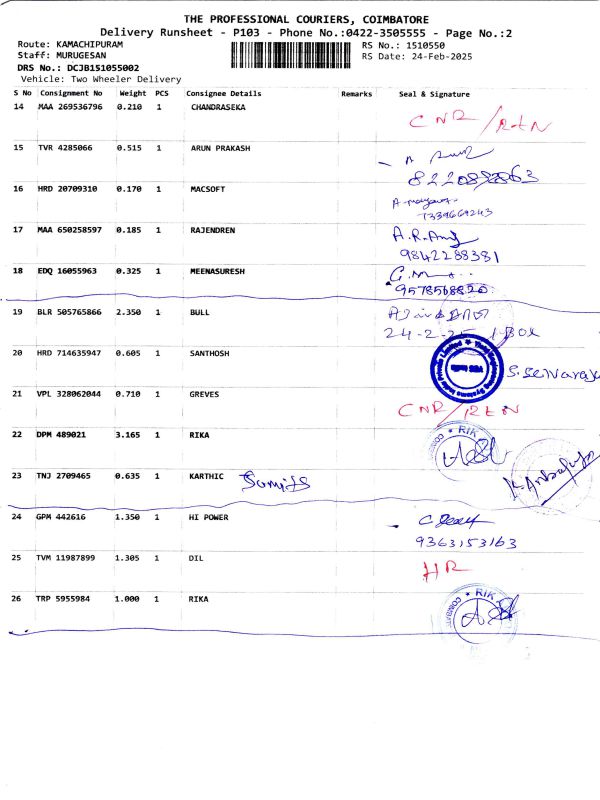 THE PROFESSIONAL COURIERS, COIMBATORE
Delivery Runsheet - P103 - Phone No.:0422-3505555 - Page No.:2
Route: KAMACHIPURAM RS No.: 1510550
Staff: MURUGESAN RS Date: 24-Feb-2025
DRS No.: DCJB151055002
Vehicle: Two Wheeler Delivery
S No Consignment No Weight PCS Consignee Details Remarks Seal & Signature
14 MAA 269536796 0.210 1 CHANDRASEKA CNR/RtN
15 TVR 4285066 0.515 1 ARUN PRAKASH
16 HRD 20709310 0.170 1 MACSOFT
7339669243
17 MAA 650258597 0.185 1 RAJENDREN
9842288381
18 EDQ 16055963 0.325 1 MEENASURESH
9578568820
19 BLR 505765866 2.350 1 BULL
24-2-25 1-BOX
20 HRD 714635947 0.605 1 SANTHOSH
21 VPL 328062044 0.710 1 GREVES CNR/RtN
22 DPM 489021 3.165 1 RIKA RIK
23 TNJ 2709465 0.635 1 KARTHIC
24 GPM 442616 1.350 1 HI POWER
9363153163
25 TVM 11987899 1.305 1 DIL HR
26 TRP 5955984 1.000 1 RIKA RIK